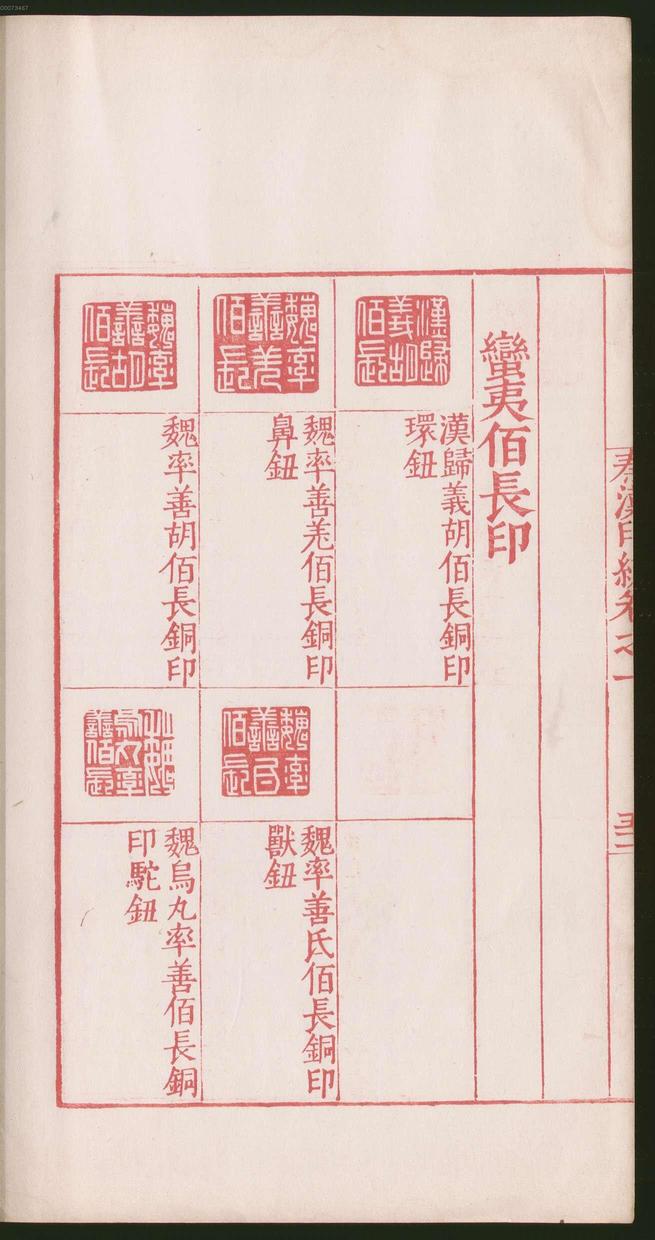 00073467
秦漢印統卷之一
蠻夷佰長印
漢歸義胡佰長
漢歸義胡佰長銅印
環鈕
魏率善羌佰長
魏率善羌佰長銅印
鼻鈕
魏率善氐佰長
魏率善氐佰長銅印
獸鈕
魏率善胡佰長
魏率善胡佰長銅印
魏烏丸率善佰長
魏烏丸率善佰長銅
印駝鈕